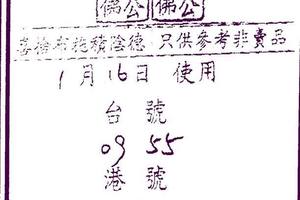 佛公 佛公
喜捨布施積陰德 只供參考非賣品
1月16日 使用
台號
09 55
港號